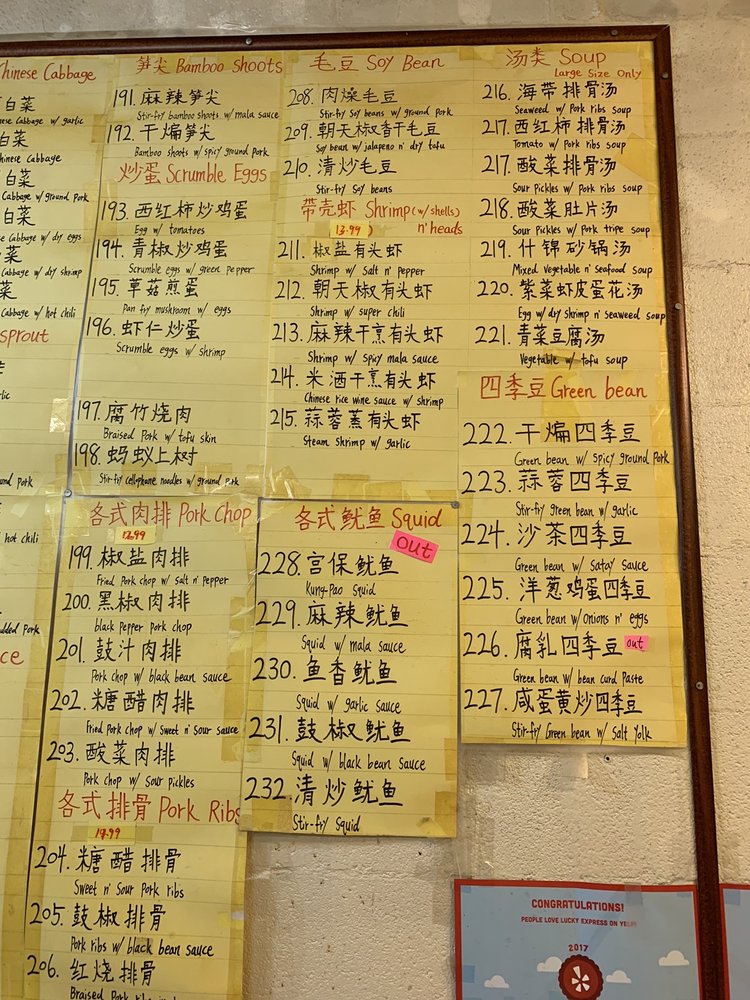 Chinese Cabbage
白菜
Cabbage w/ garlic
白菜
Chinese Cabbage
白菜
Cabbage w/ ground Pork
白菜
Cabbage w/ dry eggs
菜
Cabbage w/ dry shrimp
菜
Cabbage w/ hot chili
sprout
hot chili
笋尖 Bamboo Shoots
191. 麻辣笋尖
Stir-fry bamboo shoots w/ mala sauce
192. 干煸笋尖
Bamboo shoots w/ spicy ground pork
炒蛋 Scrumble Eggs
193. 西红柿炒鸡蛋
Egg w/ tomatoes
194. 青椒炒鸡蛋
Scrumble eggs w/ green pepper
195. 草菇煎蛋
Pan fry mushroom w/ eggs
196. 虾仁炒蛋
Scrumble eggs w/ shrimp
197. 腐竹烧肉
Braised Pork w/ tofu skin
198. 蚂蚁上树
Stir-fry cellophane noodles w/ ground pork
各式肉排 Pork Chop
12.99
199. 椒盐肉排
Fried Pork chop w/ salt n' pepper
200. 黑椒肉排
black pepper pork chop
201. 鼓汁肉排
Pork chop w/ black bean sauce
202. 糖醋肉排
Fried Pork chop w/ sweet n' sour sauce
203. 酸菜肉排
Pork chop w/ sour pickles
各式排骨 Pork Ribs
12.99
204. 糖醋排骨
Sweet n' Sour Pork ribs
205. 鼓椒排骨
Pork ribs w/ black bean sauce
206. 红烧排骨
毛豆 Soy Bean
208. 肉燥毛豆
Stir-fry Soy beans w/ ground pork
209. 朝天椒香干毛豆
Soy bean w/ jalapeno n' dry tofu
210. 清炒毛豆
Stir-fry Soy beans
带壳虾 Shrimp (w/ shells)
n' heads
13.99
211. 椒盐有头虾
Shrimp w/ Salt n' pepper
212. 朝天椒有头虾
Shrimp w/ super chili
213. 麻辣干烹有头虾
Shrimp w/ spicy mala sauce
214. 米酒干烹有头虾
Chinese rice wine sauce w/ shrimp
215. 蒜蓉蒸有头虾
Steam shrimp w/ garlic
各式鱿鱼 Squid
out
228. 宫保鱿鱼
Kung-Pao Squid
229. 麻辣鱿鱼
Squid w/ mala sauce
230. 鱼香鱿鱼
Squid w/ garlic sauce
231. 鼓椒鱿鱼
Squid w/ black bean sauce
232. 清炒鱿鱼
Stir-fry Squid
汤类 Soup
Large Size Only
216. 海带排骨汤
Seaweed w/ Pork ribs soup
217. 西红柿排骨汤
Tomato w/ Pork ribs soup
217. 酸菜排骨汤
Sour Pickles w/ Pork ribs soup
218. 酸菜肚片汤
Sour Pickles w/ Pork tripe soup
219. 什锦砂锅汤
Mixed Vegetable n' seafood soup
220. 紫菜虾皮蛋花汤
Egg w/ dry shrimp n' seaweed soup
221. 青菜豆腐汤
Vegetable w/ tofu soup
四季豆 Green bean
222. 干煸四季豆
Green bean w/ spicy ground Pork
223. 蒜蓉四季豆
Stir-fry green bean w/ garlic
224. 沙茶四季豆
Green bean w/ Satay Sauce
225. 洋葱鸡蛋四季豆
Green bean w/ onions n' eggs
226. 腐乳四季豆 out
Green bean w/ bean curd Paste
227. 咸蛋黄炒四季豆
Stir-fry Green bean w/ salt Yolk
CONGRATULATIONS!
PEOPLE LOVE LUCKY EXPRESS ON YELP!
2017